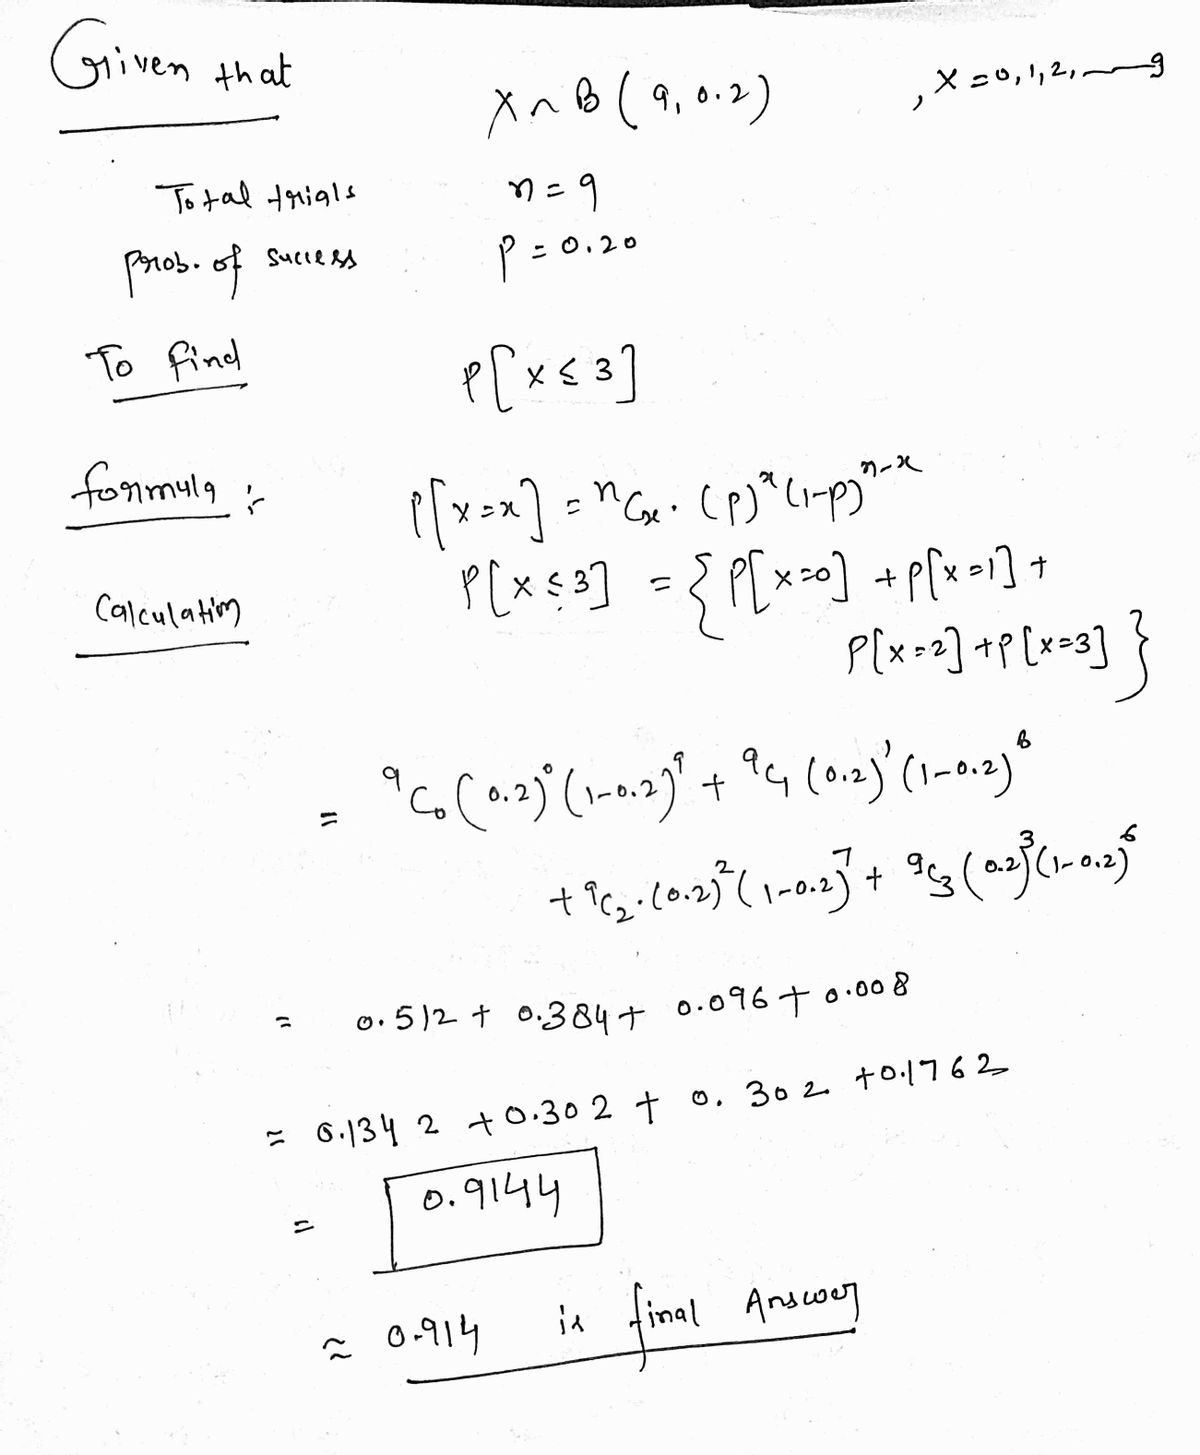 Given that
X ~ B ( 9, 0.2 ) , X = 0, 1, 2, — 9
Total trials n = 9
prob. of success p = 0.20
To find P[ X ≤ 3 ]
formula :- P[ X = x ] = ⁿCₓ . (p)ˣ (1-p)ⁿ⁻ˣ
Calculation P[ X ≤ 3 ] = { P[ X = 0 ] + P[ X = 1 ] +
P[ X = 2 ] + P[ X = 3 ] }
= ⁹C₀ ( 0.2 )⁰ ( 1-0.2 )⁹ + ⁹C₁ ( 0.2 )¹ ( 1-0.2 )⁸
+ ⁹C₂ . ( 0.2 )² ( 1-0.2 )⁷ + ⁹C₃ ( 0.2 )³ ( 1-0.2 )⁶
= 0.512 + 0.384 + 0.096 + 0.008
= 0.1342 + 0.302 + 0.302 + 0.1762
= 0.9144
≈ 0.914 is final Answer